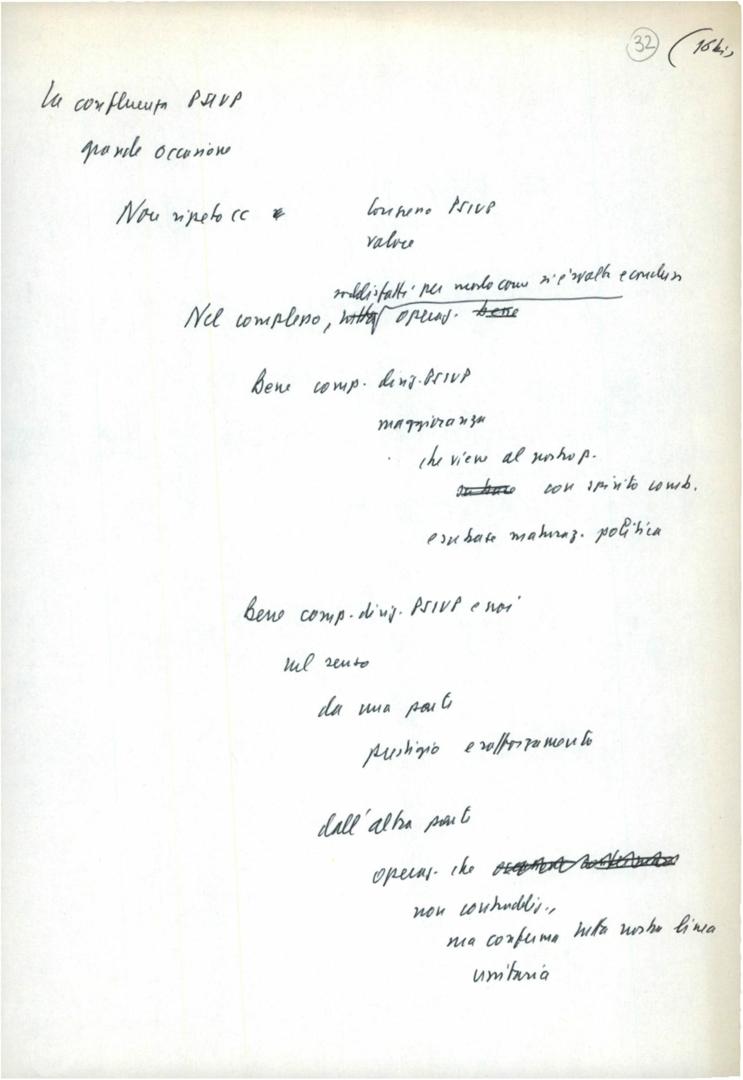 32 (16bis
La confluenza PSIUP
grande occasione
Non ripeto CC
consenso PSIUP
valore
soddisfatti per modo come si è svolta e conclusa
Nel complesso, tutta operaz. bene
Bene comp. dirig. PSIUP
maggioranza
che viene al nostro p.
su base con spirito comb.
e su base maturaz. politica
Bene comp. dirig. PSIUP e noi
nel senso
da una parte
prestigio e rafforzamento
dall'altra parte
operaz. che
non contraddis.,
ma conferma tutta nostra linea
unitaria